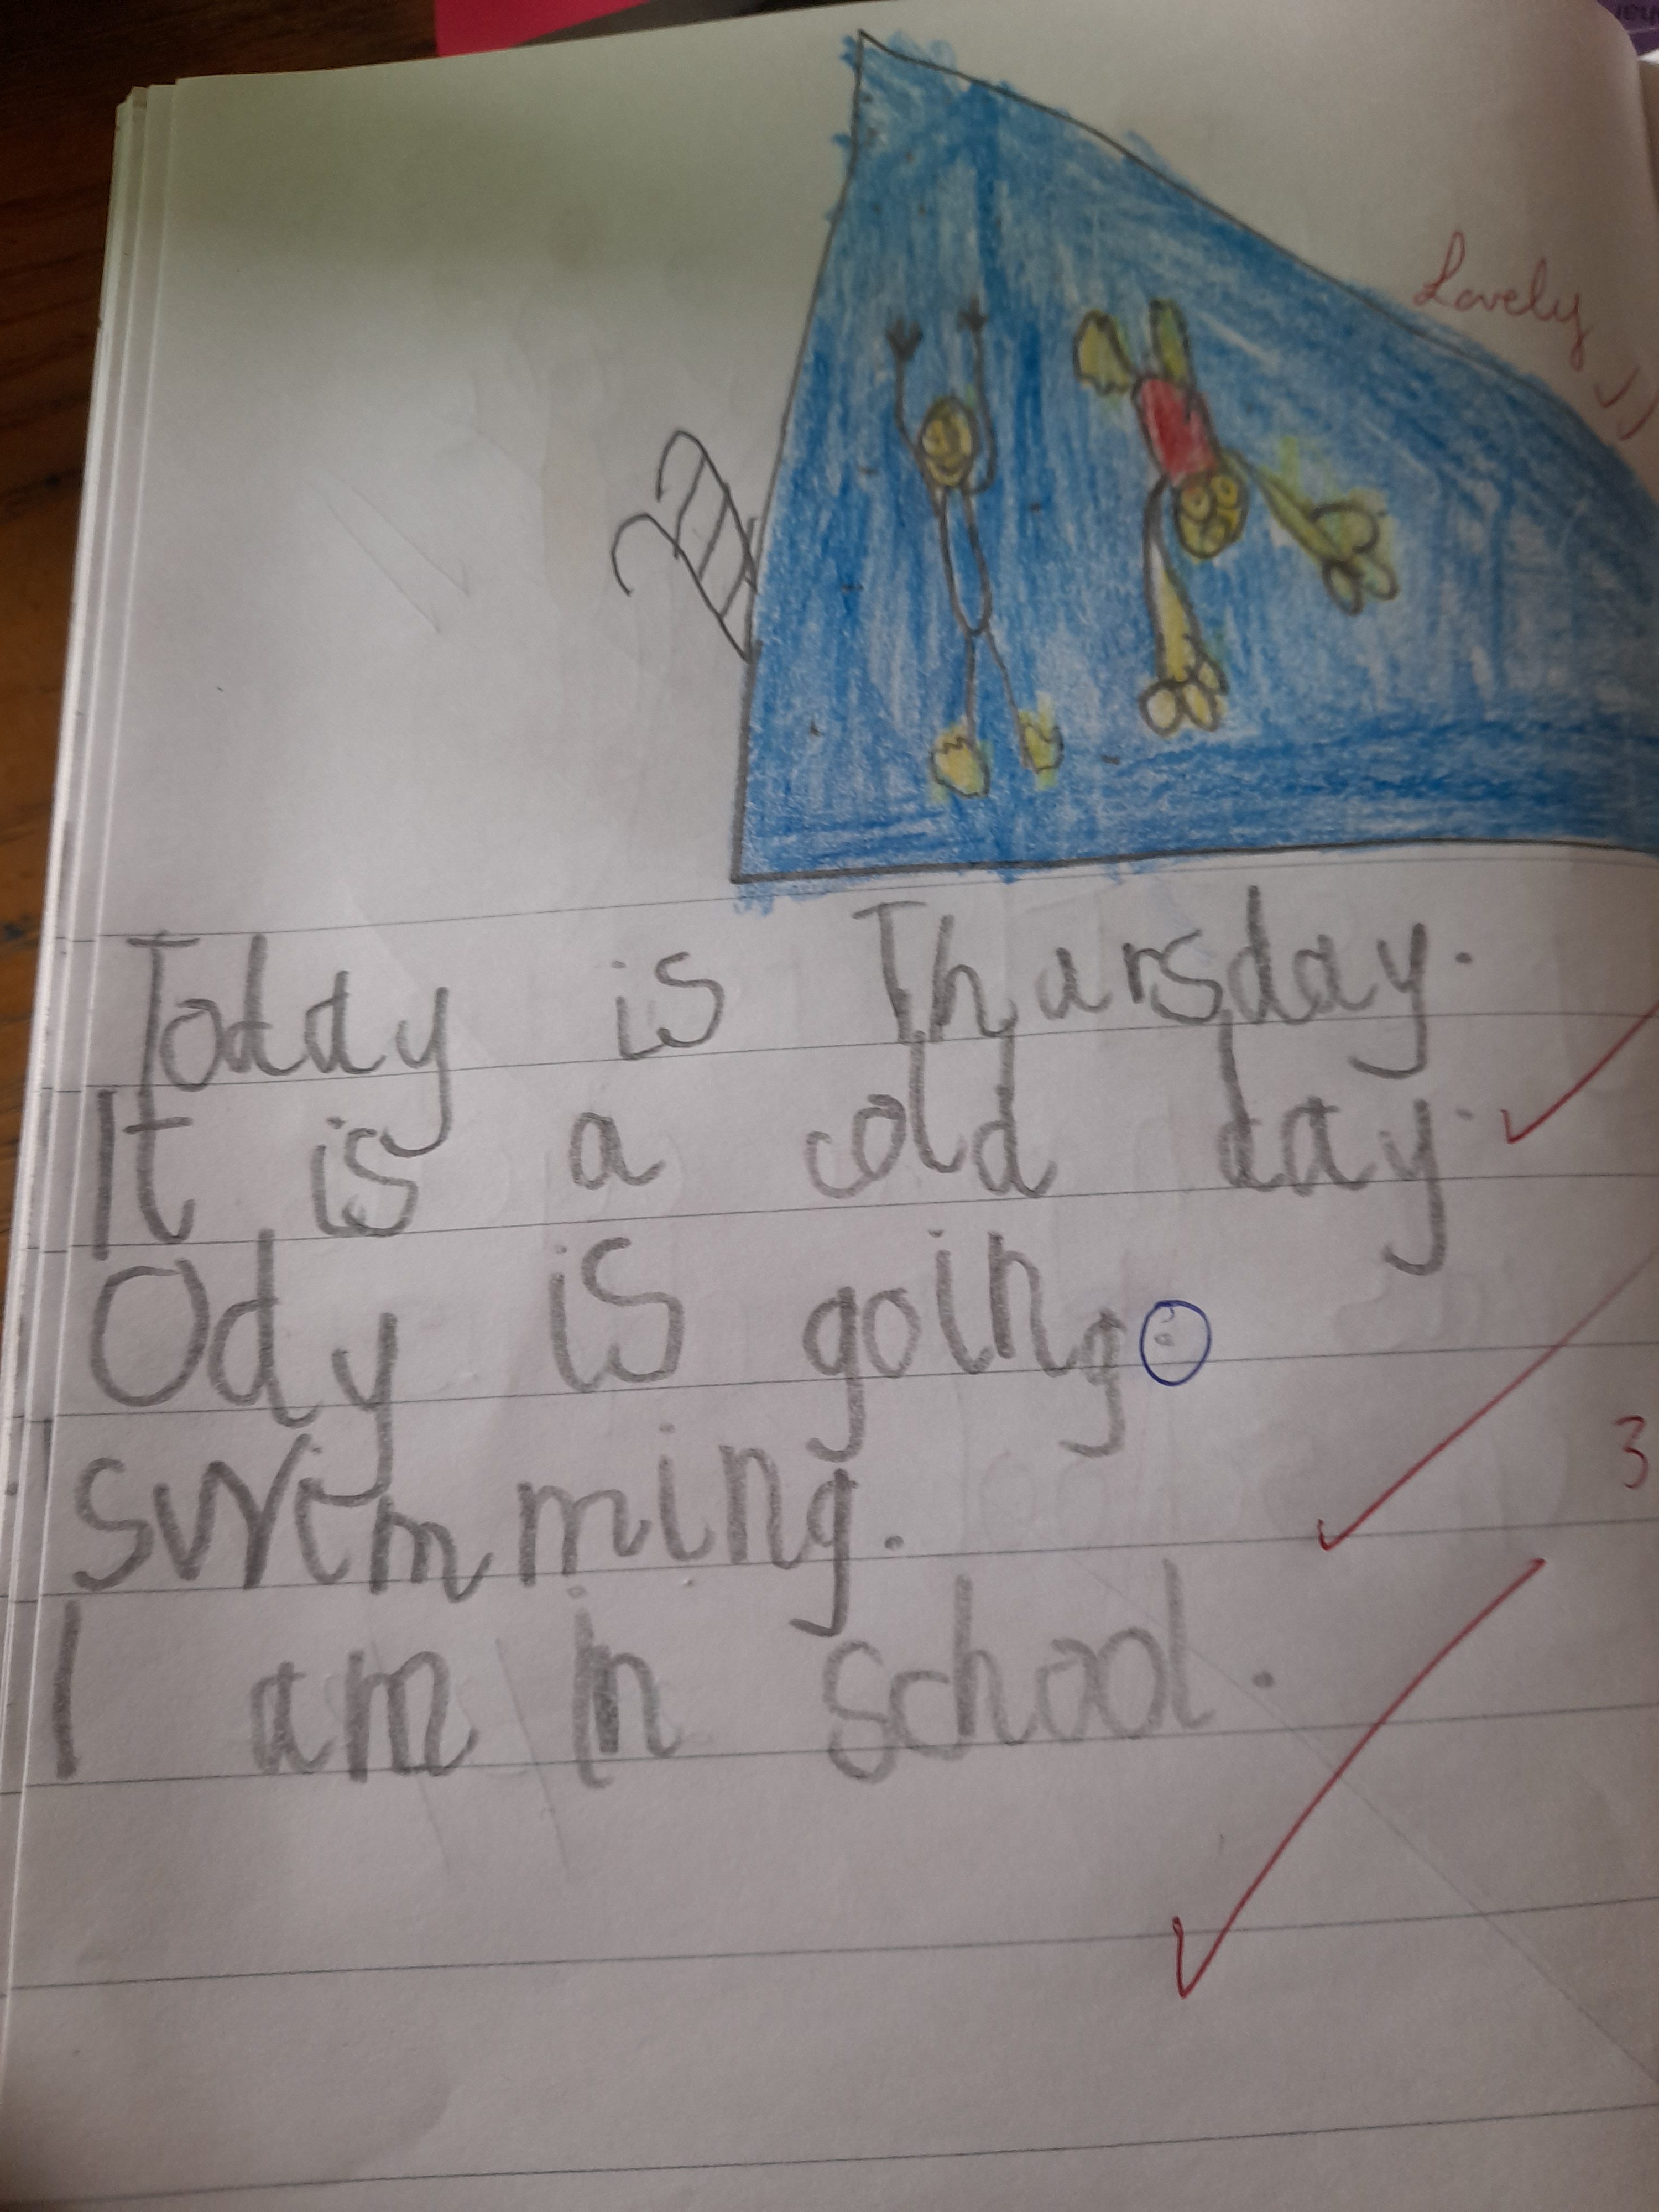 Lovely
Today is Thursday.
It is a cold day.
Ody is going.
swimming.
3
I am in school.